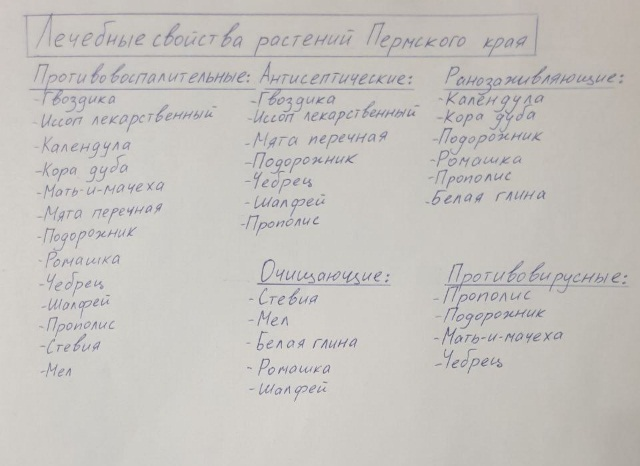 Лечебные свойства растений Пермского края
Противовоспалительные:
-Гвоздика
-Иссоп лекарственный
-Календула
-Кора дуба
-Мать-и-мачеха
-Мята перечная
-Подорожник
-Ромашка
-Чебрец
-Шалфей
-Прополис
-Стевия
-Мел
Антисептические:
-Гвоздика
-Иссоп лекарственный
-Мята перечная
-Подорожник
-Чебрец
-Шалфей
-Прополис
Ранозаживляющие:
-Календула
-Кора дуба
-Подорожник
-Ромашка
-Прополис
-Белая глина
Очищающие:
-Стевия
-Мел
-Белая глина
-Ромашка
-Шалфей
Противовирусные:
-Прополис
-Подорожник
-Мать-и-мачеха
-Чебрец